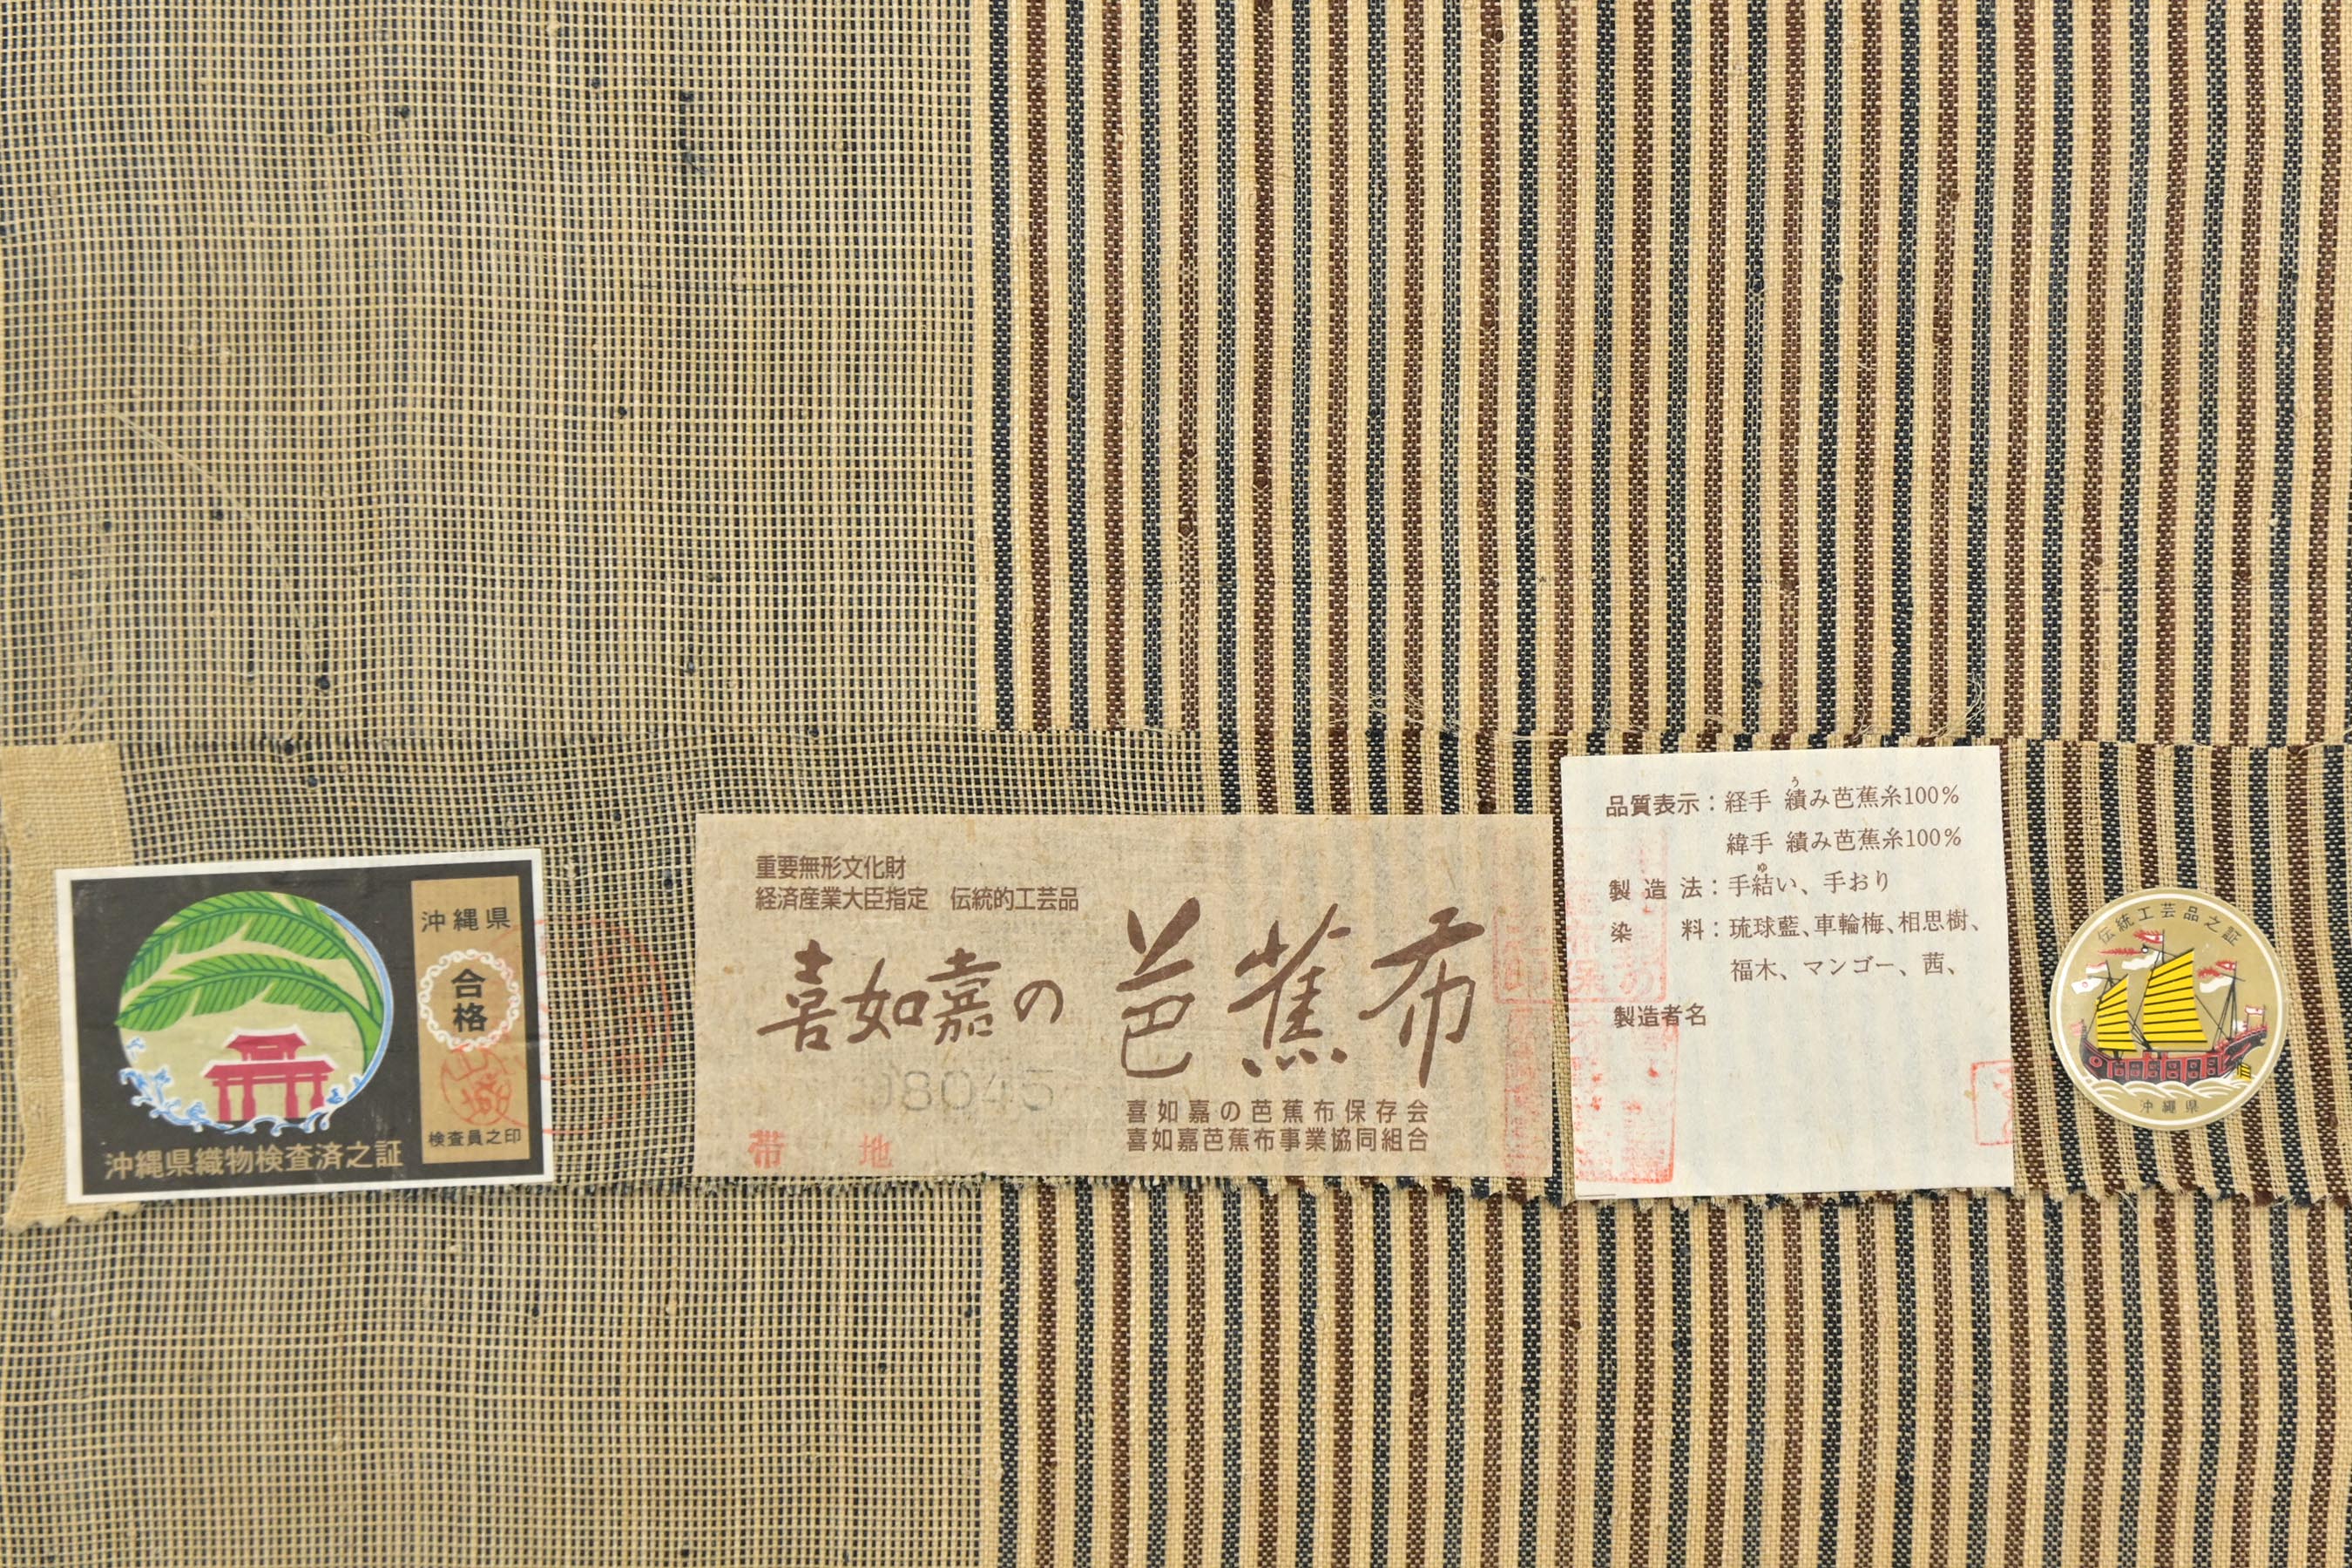 沖縄県
合格
検査員之印
沖縄県織物検査済之証
重要無形文化財
経済産業大臣指定 伝統的工芸品
喜如嘉の芭蕉布
98045
帯地
喜如嘉の芭蕉布保存会
喜如嘉芭蕉布事業協同組合
品質表示：経手 績み芭蕉糸100%
緯手 績み芭蕉糸100%
製造法：手結い、手おり
染料：琉球藍、車輪梅、相思樹、
福木、マンゴー、茜、
製造者名
伝統工芸品之証
沖縄県